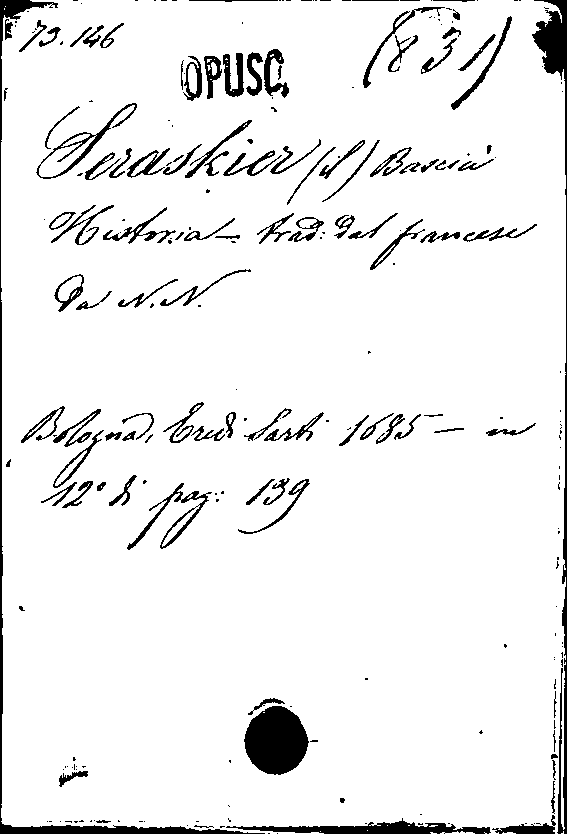 73.146
(831)
OPUSC.
Seraskier (il) Bascià
Historia - trad: dal francese
da N. N.
Bologna, Eredi Sarti 1685 - in
12° di pag: 139